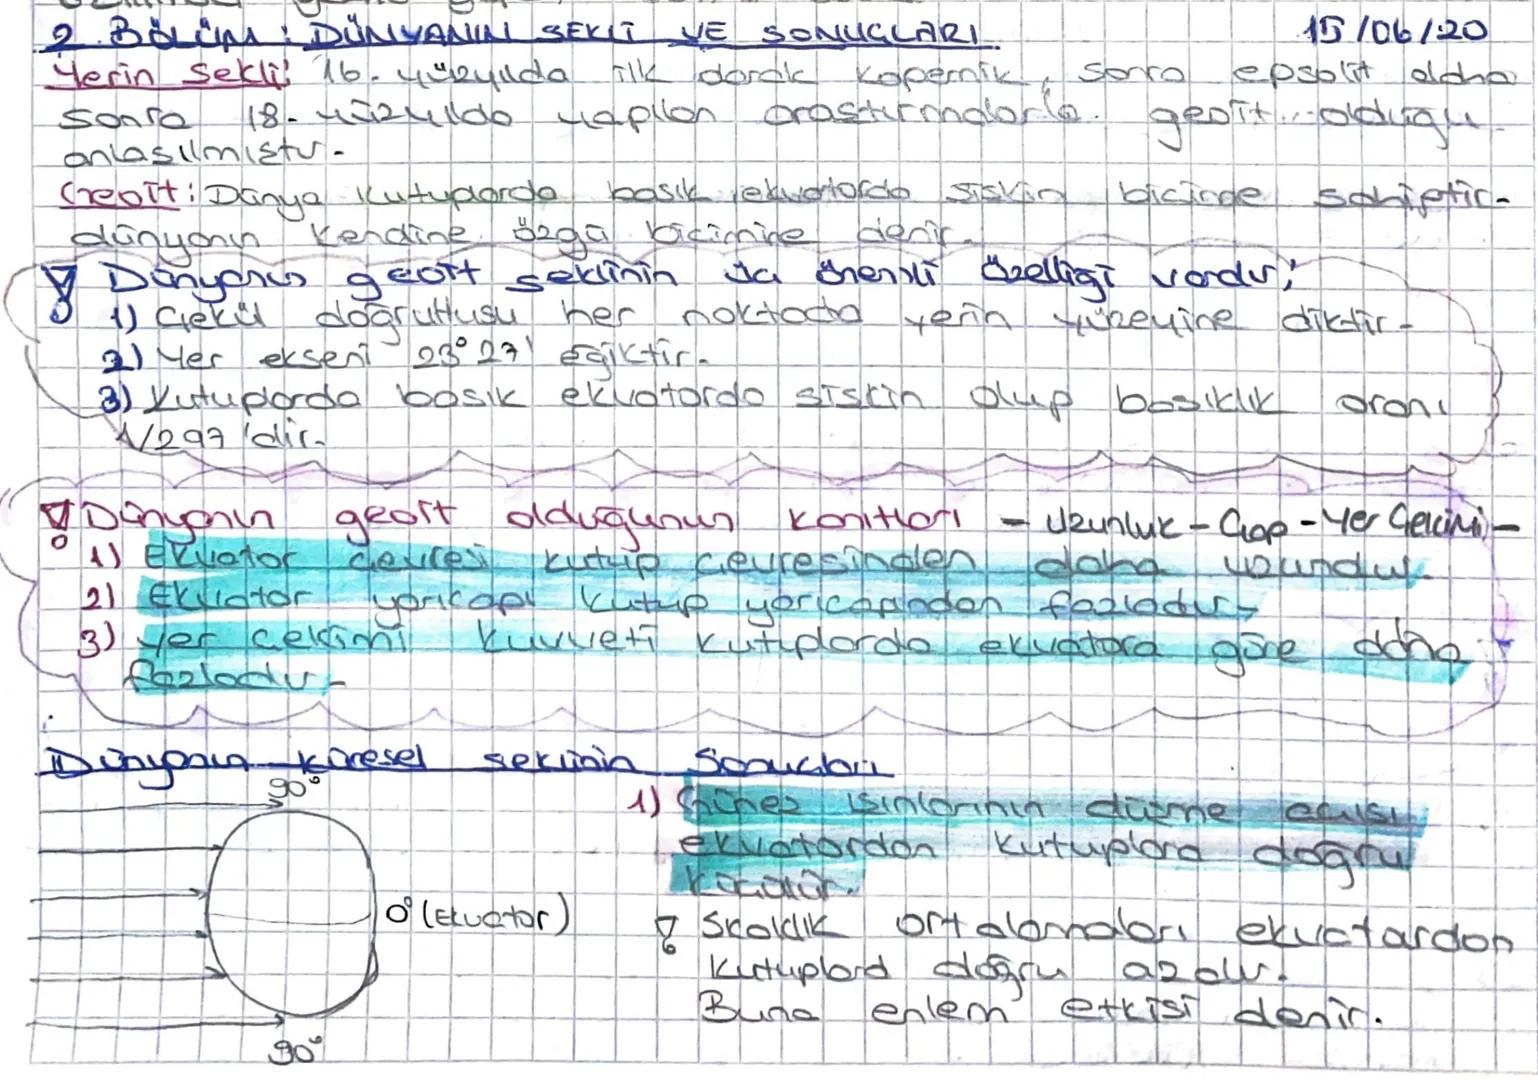 2. BÖLÜM: DÜNYANIN ŞEKLİ VE SONUÇLARI 15/06/20
Yerin Şekli: 16. yüzyılda ilk darak Kopernik, sonra epsolit daha
sonra 18. yüzyılda yapılan araştırmalarla geoit olduğu
anlaşılmıştır.
Geoit: Dünya Kutuplarda basık ekvatorda şişkin biçimde sahiptir.
dünyanın Kendine özgü biçimine denir.
Dünyanın geoit şeklinin üç önemli özelliği vardır;
1) Çekül doğrultusu her noktada yerin yüzeyine diktir.
2) Yer ekseni 23° 27' eğiktir.
3) Kutuplarda basık ekvatorda şişkin olup basıklık oranı
1/297 'dir.
Dünyanın geoit olduğunun kanıtları - Uzunluk - Çap - Yer Çekimi -
1) Ekvator çevresi kutup çevresinden daha uzundur.
2) Ekvator yarıçapı kutup yarıçapından fazladır.
3) Yer çekimi kuvveti kutuplarda ekvatora göre daha
fazladır.
Dünyanın küresel şeklinin Sonuçları
90°
1) Güneş ışınlarının düşme açısı
ekvatordan kutuplara doğru
küçülür.
0° (Ekvator)
Sıcaklık ortalamaları ekvatordan
kutuplara doğru azalır.
Buna enlem etkisi denir.
90°